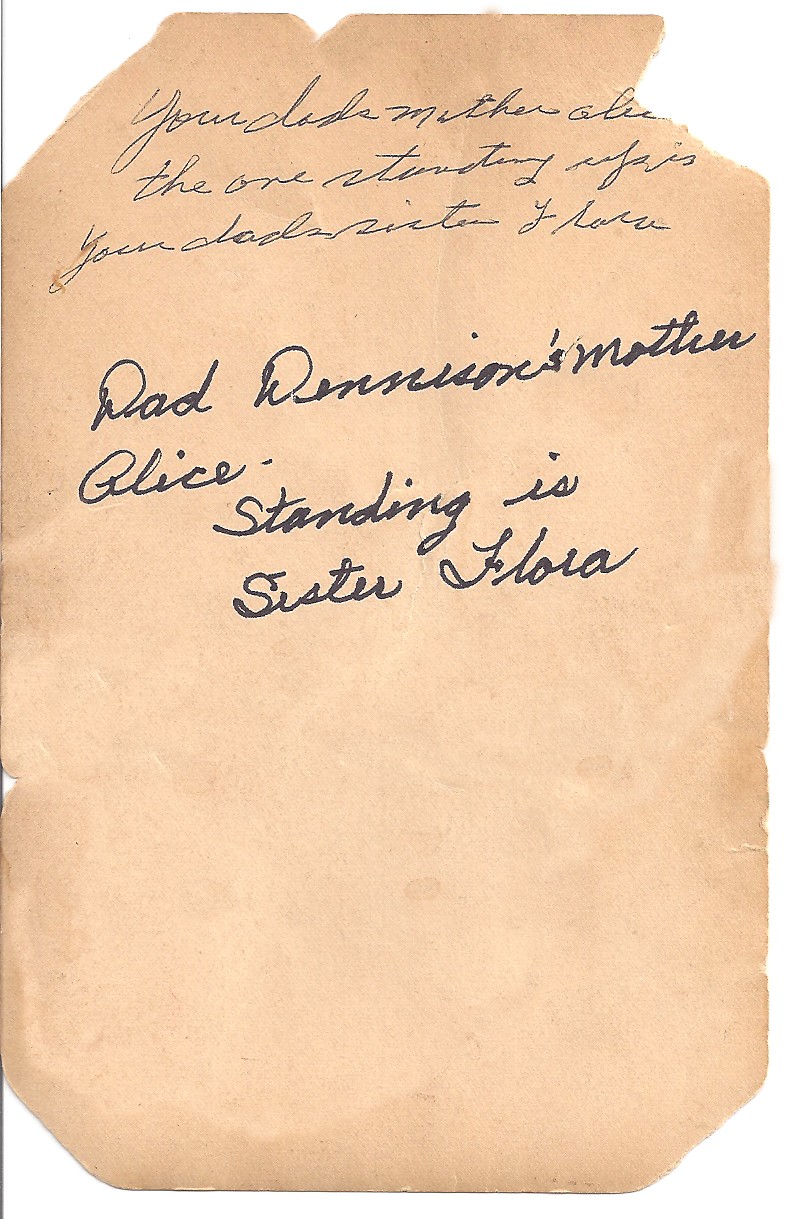 Your dads mother
the one standing up is
Your dads sister Flora
Dad Dennison's mother
Alice.
Standing is
Sister Flora